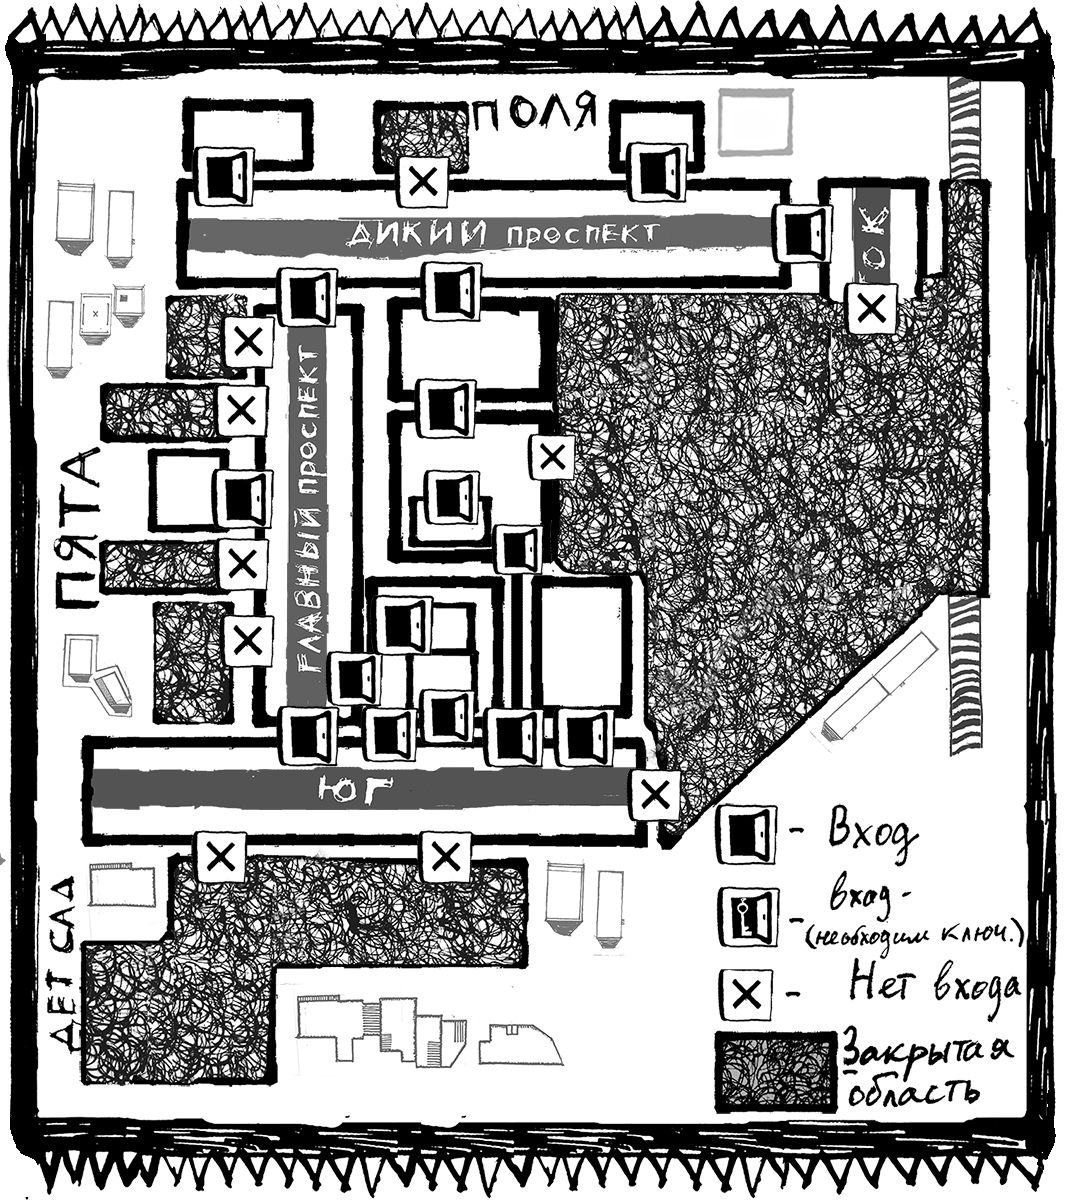 ПОЛЯ
ДИКИЙ ПРОСПЕКТ
ГОК
ГЛАВНЫЙ ПРОСПЕКТ
ПЯТА
ЮГ
ДЕТ САД
- Вход
- вход -
(необходим ключ.)
- Нет входа
Закрытая
область